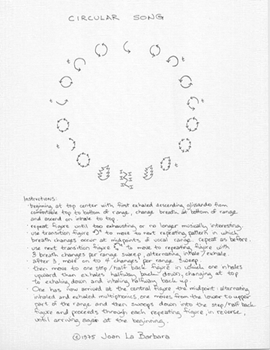 CIRCULAR SONG
Instructions:
beginning at top center with first exhaled descending glissando from
comfortable top to bottom of range, change breath at bottom of range,
and ascend on inhale to top.
repeat figure until too exhausting or no longer musically interesting,
use transition figure to move to next repeating pattern in which
breath changes occur at midpoints of vocal range. repeat as before,
use next transition figure to move to repeating figure with
3 breath changes per range sweep, alternating inhale/exhale.
after 3, move on to 4 changes per range sweep.
then move to one step/half back figure in which one inhales
upward then exhales halfway back/down, changing at top
to exhaling down and inhaling halfway back up.
One has now arrived at the central figure the midpoint: alternating
inhaled and exhaled multiphonics, one moves from the lower to upper
part of the range and then sweeps down into the step/half back
figure and proceeds through each repeating figure, in reverse,
until arriving again at the beginning.
©1975 Joan La Barbara